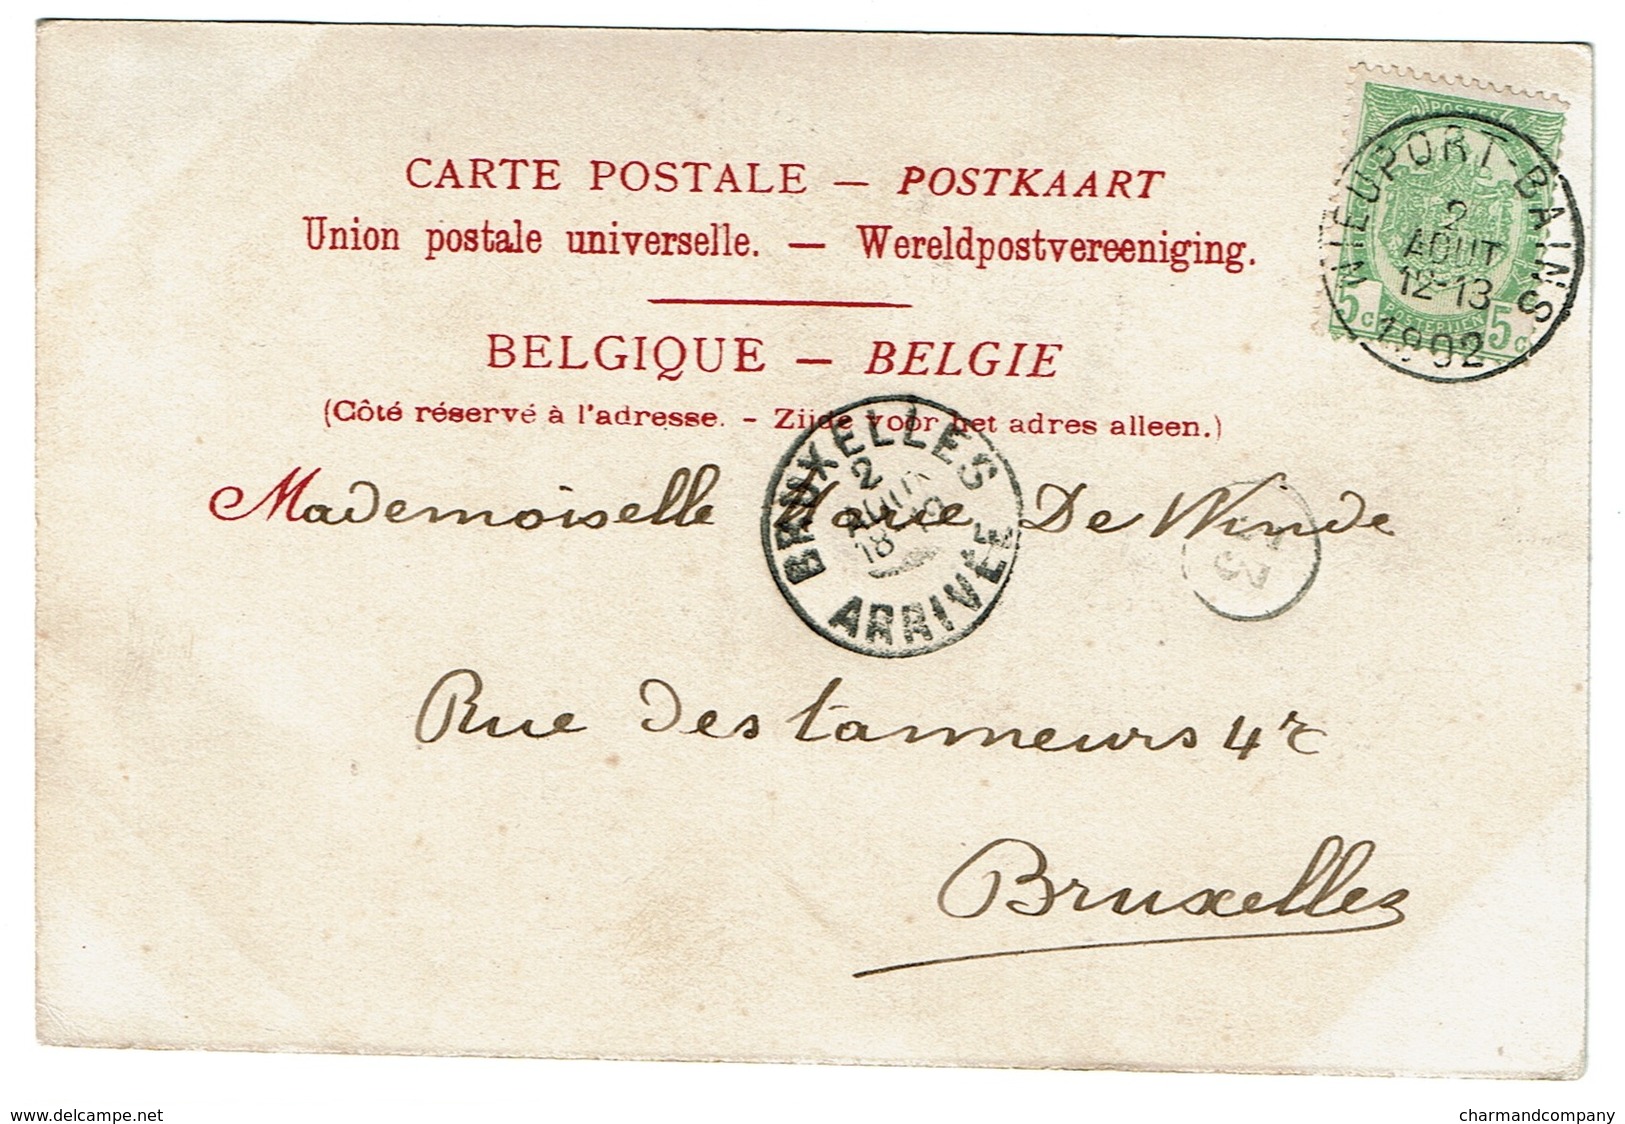 CARTE POSTALE — POSTKAART
Union postale universelle. — Wereldpostvereeniging.
BELGIQUE — BELGIE
(Côté réservé à l'adresse. - Zijde voor het adres alleen.)
POSTES
NIEUPORT-BAINS
2
AOUT
12-13
1902
5c POSTERIJEN 5c
BRUXELLES
2
AOUT
18-19
ARRIVÉE
Mademoiselle De Winde
3
Rue des tanneurs 42
Bruxelles
www.delcampe.net
charmandcompany